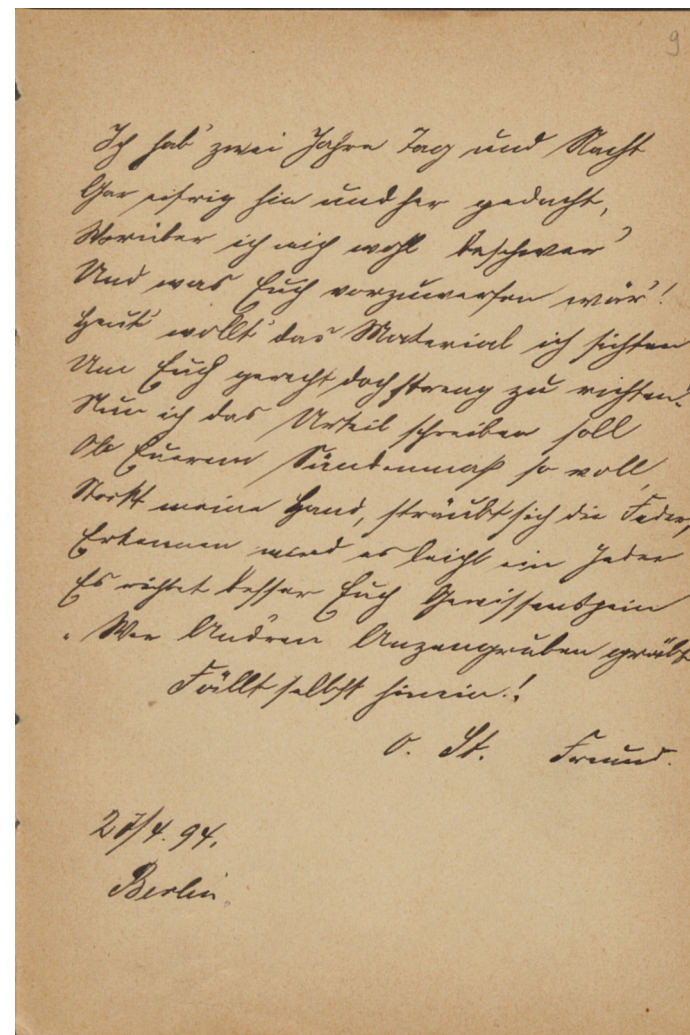 9
Ich hab' zwei Jahre Tag und Nacht
Gar eifrig hin und her gedacht,
Worüber ich mich wohl beschwer'
Und was Euch vorzuwerfen wär'!
Heut' wollt' das Material ich sichten
Um Euch gerecht doch streng zu richten.
Nun ich das Urteil schreiben soll
Ob Euerem Sündenmaß so voll,
Stockt meine Hand, sträubt sich die Feder,
Erkennen wird es leicht ein Jeder
Es richtet besser Euch Gewissenspein
„Wer Andren Anzengruben gräbt
Fällt selbst hinein.!
O. St. Freund.
27/4. 94.
Berlin.